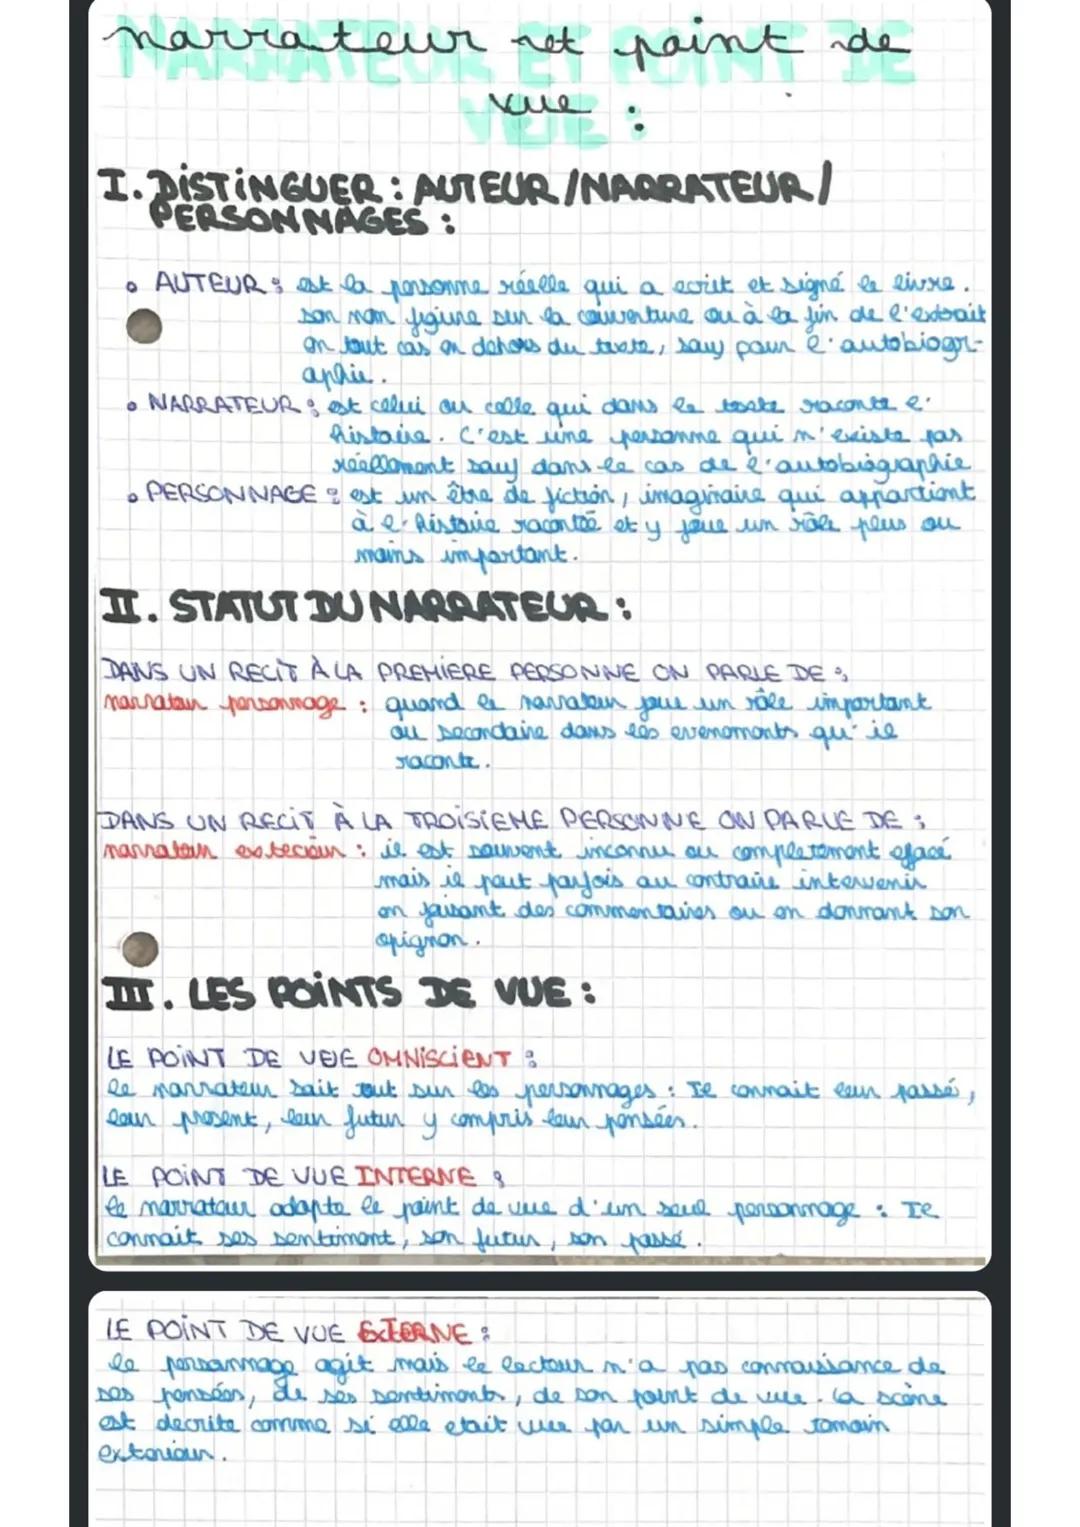 narrateur et point de
vue :
NARRATEUR ET POINT DE
VUE :
I. DISTINGUER : AUTEUR / NARRATEUR /
PERSONNAGES :
• AUTEUR : est la personne réelle qui a ecrit et signé le livre.
son nom figure sur la couverture ou à la fin de l'extrait
en tout cas en dehors du texte, sauf pour l'autobiogr-
aphie.
• NARRATEUR : est celui ou celle qui dans le texte raconte l'
histoire. C'est une personne qui n'existe pas
réellement sauf dans le cas de l'autobiographie
• PERSONNAGE : est un être de fiction, imaginaire qui appartient
à l'histoire racontée et y joue un rôle plus ou
moins important.
II. STATUT DU NARRATEUR :
DANS UN RECIT À LA PREMIERE PERSONNE ON PARLE DE :
narrateur personnage : quand le narrateur joue un rôle important
ou secondaire dans les evenements qu'il
raconte.
DANS UN RECIT À LA TROISIEME PERSONNE ON PARLE DE :
narrateur exterieur : il est souvent inconnu ou completement efacé
mais il peut parfois au contraire intervenir
en faisant des commentaires ou en donnant son
opignon.
III. LES POINTS DE VUE :
LE POINT DE VUE OMNISCIENT :
le narrateur sait tout sur les personnages : Il connait leur passé,
leur present, leur futur y compris leur pensées.
LE POINT DE VUE INTERNE :
le narrateur adopte le point de vue d'un seul personnage : Il
connait ses sentiment, son futur, son passé.
LE POINT DE VUE EXTERNE :
le personnage agit mais le lecteur n'a pas connaissance de
ses pensées, de ses sentiments, de son point de vue. la scène
est decrite comme si elle etait vue par un simple temoin
exterieur.